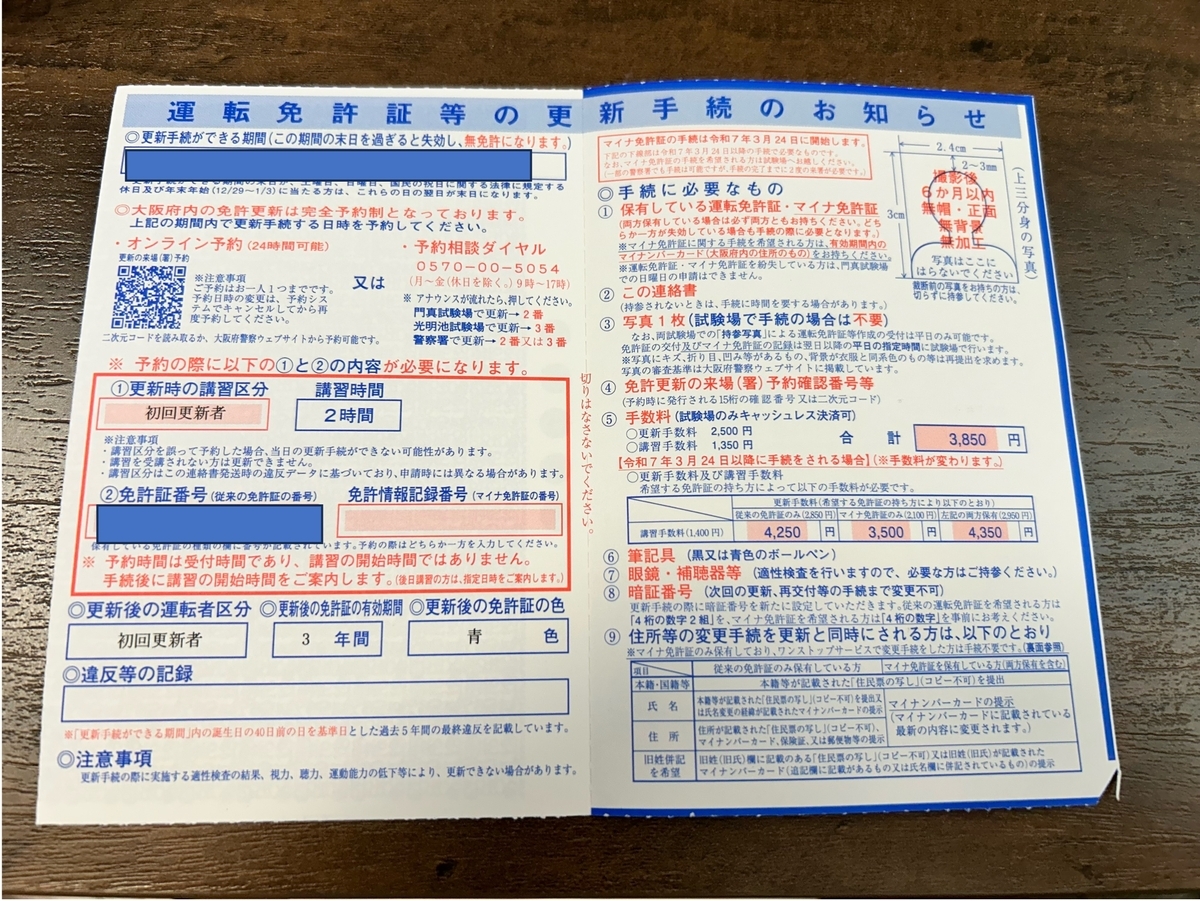 運転免許証等の更新手続のお知らせ
◎更新手続ができる期間(この期間の末日を過ぎると失効し、無免許になります。)
休日及び年末年始(12/29~1/3)に当たる方は、これらの日の翌日が末日になります。
◎大阪府内の免許更新は完全予約制となっております。
上記の期間内で更新手続する日時を予約してください。
・オンライン予約(24時間可能)
更新の来場(署)予約
※注意事項
ご予約はお一人1つまでです。
予約日時の変更は、予約システムでキャンセルしてから再
度予約してください。
二次元コードを読み取るか、大阪府警察ウェブサイトから予約可能です。
又は
・予約相談ダイヤル
0570-00-5054
(月~金(休日を除く。)9時~17時)
※ アナウンスが流れたら、押してください。
門真試験場で更新→2番
光明池試験場で更新→3番
警察署で更新→2番又は3番
※ 予約の際に以下の①と②の内容が必要になります。
①更新時の講習区分 講習時間
初回更新者 2時間
※注意事項
・講習区分を誤って予約した場合、当日の更新手続ができない可能性があります。
・講習を受講されない方は更新できません。
・講習区分はこの連絡書発送時の違反データに基づいており、申請時には異なる場合があります。
②免許証番号(従来の免許証の番号) 免許情報記録番号(マイナ免許証の番号)
保有している免許証の種類の欄に番号が記載されています。予約の際はどちらか一方を入力してください。
※ 予約時間は受付時間であり、講習の開始時間ではありません。
手続後に講習の開始時間をご案内します。(後日講習の方は、指定日時をご案内します。)
◎更新後の運転者区分 ◎更新後の免許証の有効期間 ◎更新後の免許証の色
初回更新者 3 年間 青 色
◎違反等の記録
※「更新手続ができる期間」内の誕生日の40日前の日を基準日とした過去5年間の最終違反を記載しています。
◎注意事項
更新手続の際に実施する適性検査の結果、視力、聴力、運動能力の低下等により、更新できない場合があります。
切りはなさないでください。
マイナ免許証の手続は令和7年3月24日に開始します。
下記の下線部は令和7年3月24日以降の手続で必要なものです。
なお、マイナ免許証の手続を希望される方は試験場へお越しください。
(一部の警察署でも手続は可能ですが、手続の完了までに2度の来署が必要です。)
◎手続に必要なもの
① 保有している運転免許証・マイナ免許証
(両方保有している場合は必ず両方ともお持ちください。どち
らか一方が失効している場合も手続の際に必要となります。)
※マイナ免許証に関する手続を希望される方は、有効期間内の
マイナンバーカード(大阪府内の住所のもの)をお持ちください。
※運転免許証・マイナ免許証を紛失している方は、門真試験場
での日曜日の申請はできません。
2.4cm
2~3mm
3cm
撮影後
6か月以内
無帽・正面
無背景
無加工
写真はここに
はらないでください
(上三分身の写真)
裁断前の写真をお持ちの方は、
切らずに持参してください。
② この連絡書
(持参されないときは、手続に時間を要する場合があります。)
③ 写真1枚(試験場で手続の場合は不要)
なお、両試験場での「持参写真」による運転免許証等作成の受付は平日のみ可能です。
免許証の交付及びマイナ免許証の記録は翌日以降の平日の指定時間に試験場で行います。
※写真にキズ、折り目、凹み等があるもの、背景が衣服と同系色のもの等は再提出を求めます。
写真の審査基準は大阪府警察ウェブサイトに掲載しています。
④ 免許更新の来場(署)予約確認番号等
(予約時に発行される15桁の確認番号又は二次元コード)
⑤ 手数料(試験場のみキャッシュレス決済可)
○更新手数料 2,500 円
○講習手数料 1,350 円
合 計 3,850 円
【令和7年3月24日以降に手続をされる場合】(※手数料が変わります。)
○更新手数料及び講習手数料
希望する免許証の持ち方によって以下の手数料が必要です。
更新手数料(希望する免許証の持ち方により以下のとおり)
従来の免許証のみ(2,850円) マイナ免許証のみ(2,100円) 左記の両方保有(2,950円)
講習手数料(1,400円) 4,250 円 3,500 円 4,350 円
⑥ 筆記具 (黒又は青色のボールペン)
⑦ 眼鏡・補聴器等 (適性検査を行いますので、必要な方はご持参ください。)
⑧ 暗証番号 (次回の更新、再交付等の手続まで変更不可)
更新手続の際に暗証番号を新たに設定していただきます。従来の運転免許証を希望される方は
「4桁の数字2組」を、マイナ免許証を希望される方は「4桁の数字」を事前にお考えください。
⑨ 住所等の変更手続を更新と同時にされる方は、以下のとおり
※マイナ免許証のみ保有しており、ワンストップサービスで変更手続をした方は手続不要です。(裏面参照)
項目 従来の免許証のみ保有している方 マイナ免許証を保有している方(両方保有を含む)
本籍・国籍等 本籍等が記載された「住民票の写し」(コピー不可)を提出
氏 名 本籍等が記載された「住民票の写し」(コピー不可)を提出又は氏名変更の経緯が記載されたマイナンバーカードの提示
住 所 住所が記載された「住民票の写し」(コピー不可)、マイナンバーカード、保険証、又は郵便物等の提示
マイナンバーカードの提示
(マイナンバーカードに記載されている
最新の内容に変更されます。)
旧姓併記を希望 旧姓(旧氏)欄に記載のある「住民票の写し」(コピー不可)又は旧姓(旧氏)が記載された
マイナンバーカード(追記欄に記載があるもの又は氏名欄に併記されているもの)の提示